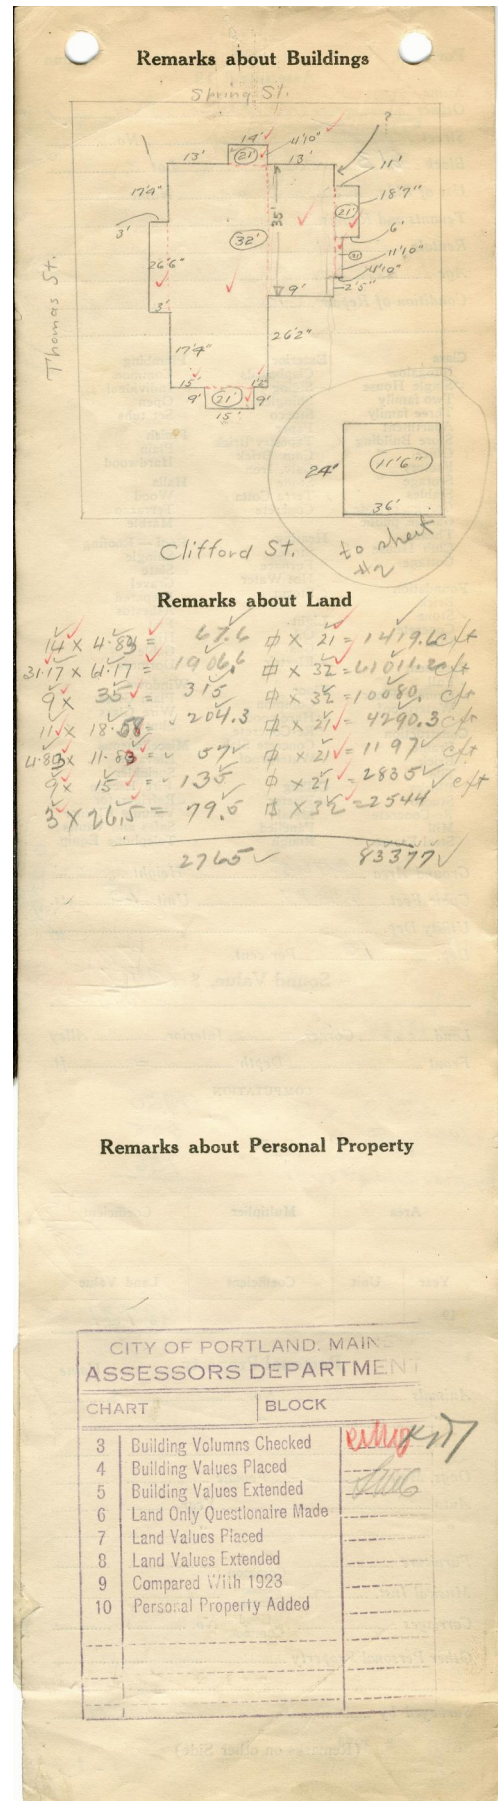 Remarks about Buildings
Spring St.
14' 11'10" ?
21'
13' 13' 11'
17'9" 18'7"
21'
35'
3' 6'
32' 21
26'6" 11'10"
4'10"
3' 9' 2'5"
26'2"
17'4"
15' 12'
9' 21' 9'
15'
Thomas St.
24' 11'6"
36'
Clifford St.
to sheet
#2
Remarks about Land
14 x 4.83 = 67.6 x 21 = 1419.6 cft
31.17 x 61.17 = 1906.6 x 32 = 61011.2 cft
9 x 35 = 315 x 32 = 10080. cft
11 x 18.58 = 204.3 x 21 = 4290.3 cft
4.83 x 11.83 = 57 x 21 = 1197 cft
9 x 15 = 135 x 21 = 2835 cft
3 x 26.5 = 79.5 x 32 = 2544
2765 83377
Remarks about Personal Property
CITY OF PORTLAND. MAIN
ASSESSORS DEPARTMENT
CHART BLOCK
3 Building Volumns Checked
4 Building Values Placed
5 Building Values Extended
6 Land Only Questionaire Made
7 Land Values Placed
8 Land Values Extended
9 Compared With 1923
10 Personal Property Added